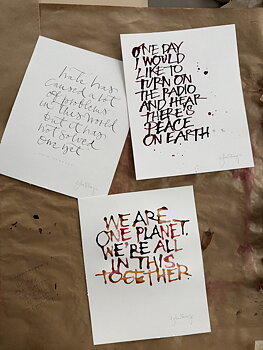 hate has
caused a lot
of problems
in this world
but it has
not solved
one yet
ONE DAY
I WOULD
LIKE TO
TURN ON
THE RADIO
AND HEAR
THERE'S
PEACE
ON EARTH
WE ARE
ONE PLANET.
WE'RE ALL
IN THIS
TOGETHER